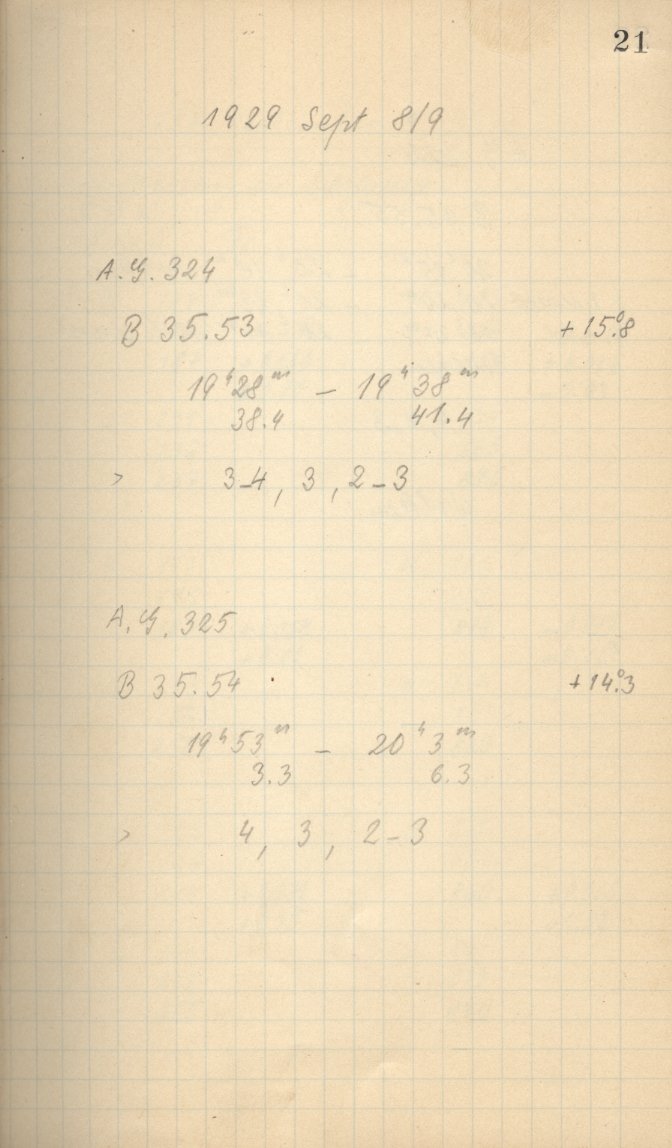 21
1929 Sept 8/9
A.G. 324
B 35.53 +15°.8
19ʰ28ᵐ – 19ʰ38ᵐ
38.4 41.4
> 3–4, 3, 2–3
A.G. 325
B 35.54 +14°.3
19ʰ53ᵐ – 20ʰ3ᵐ
3.3 6.3
> 4, 3, 2–3